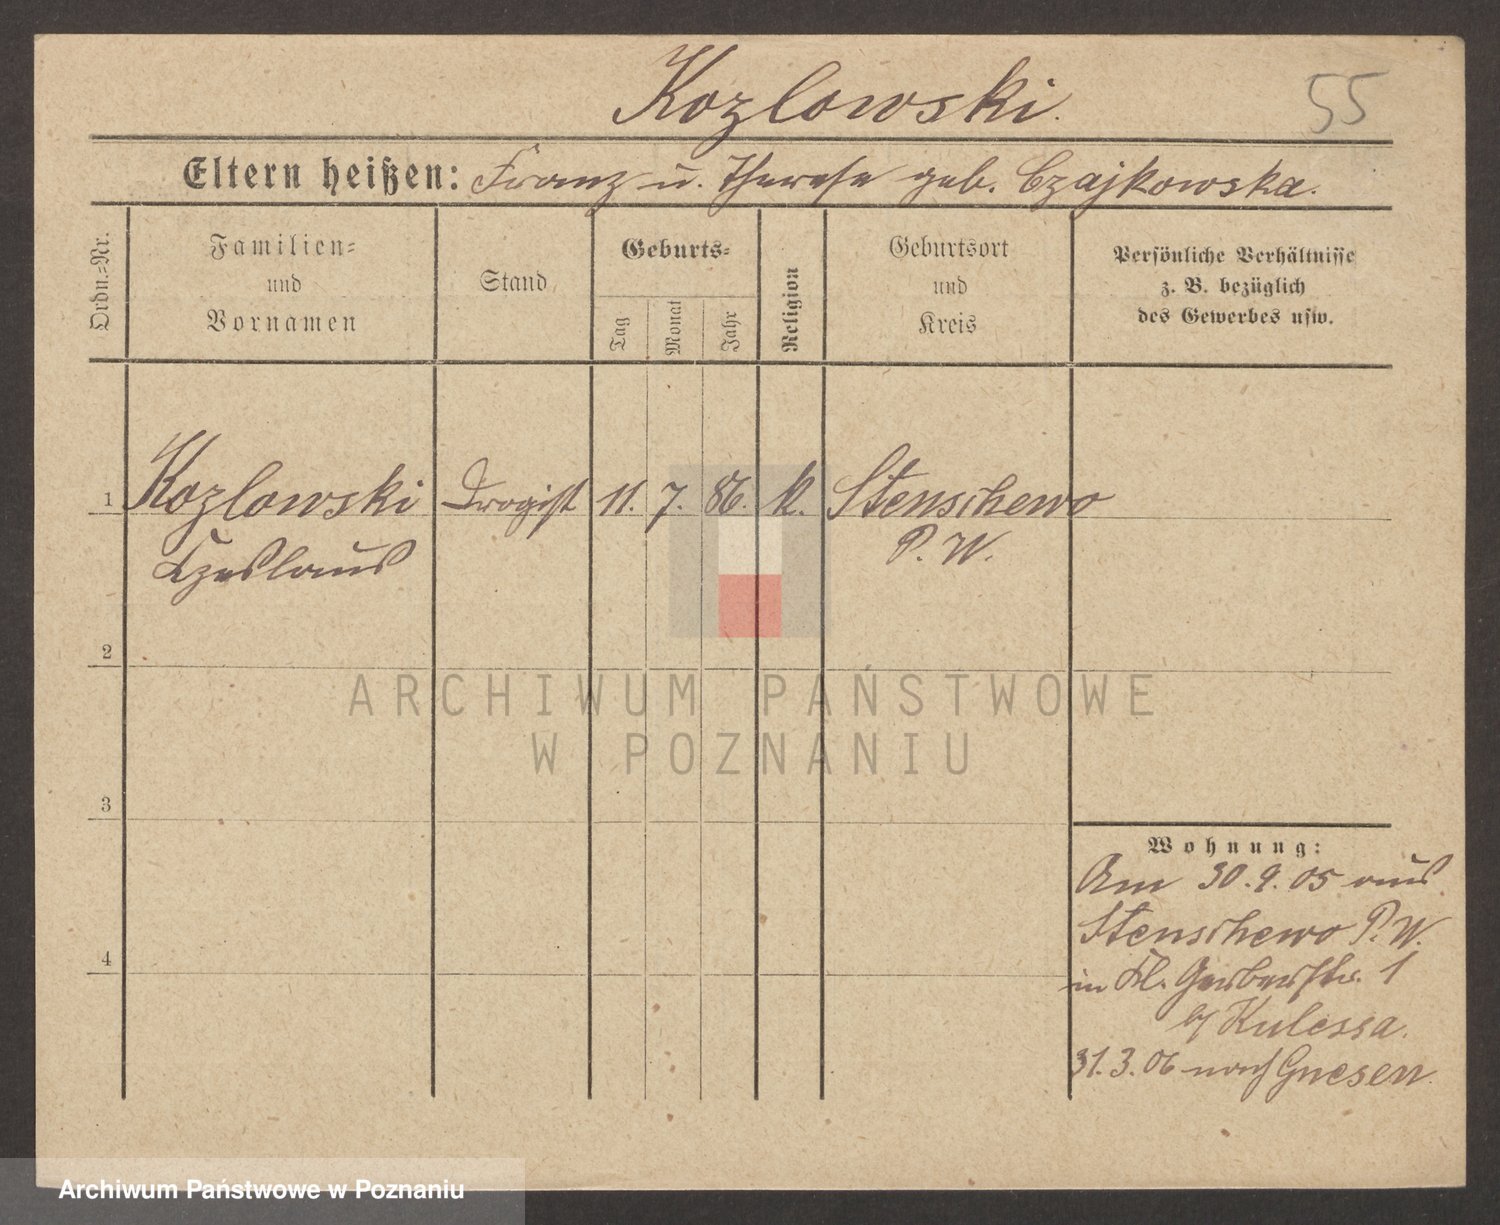 Kozlowski.
55
Eltern heißen: Franz u. Therese geb. Czajkowska.
Ordn.=Nr.
Familien=
und
Vornamen
Stand
Geburts=
Tag
Monat
Jahr
Religion
Geburtsort
und
Kreis
Persönliche Verhältnisse
z. B. bezüglich
des Gewerbes usw.
1 Kozlowski Drogist 11. 7. 86. k. Stenschewo
Czeslaus P. W.
2
3
4
Wohnung:
Am 30.9.05 aus
Stenschewo P. W.
in Kl. Gerberstr. 1
b/ Kulessa.
31.3.06 nach Gnesen.
ARCHIWUM PAŃSTWOWE
W POZNANIU
Archiwum Państwowe w Poznaniu